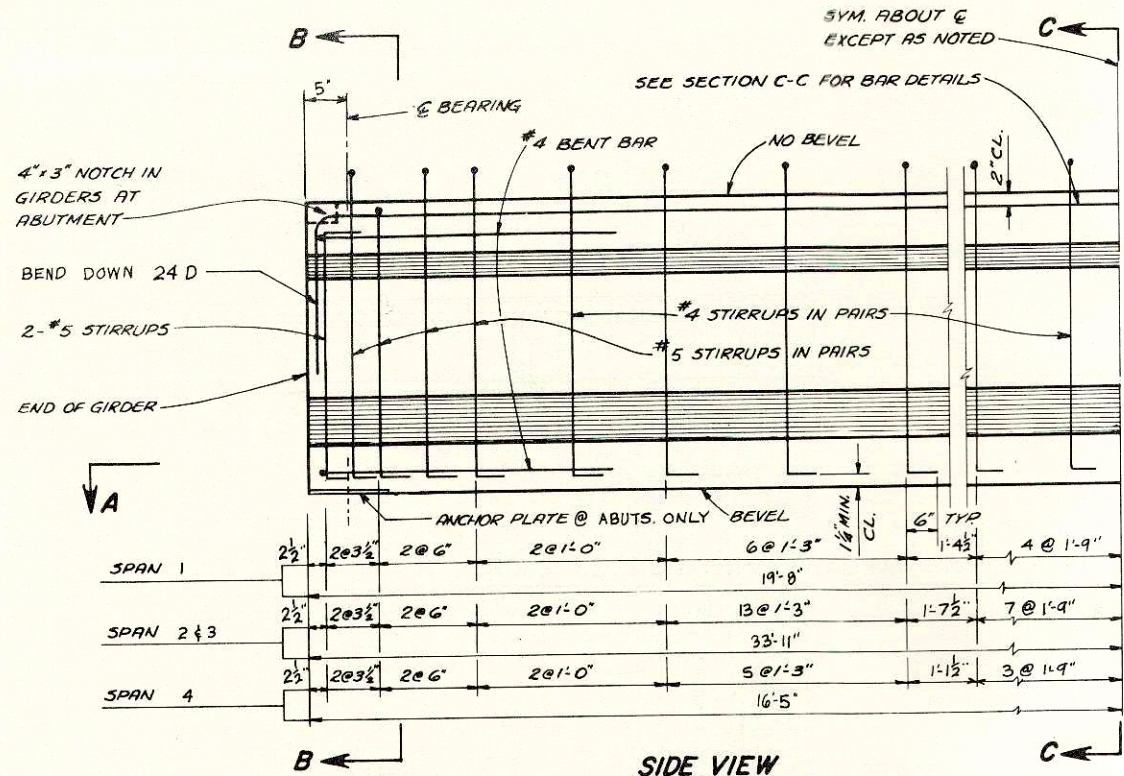 SYM. ABOUT ℄
EXCEPT AS NOTED
B
C
SEE SECTION C-C FOR BAR DETAILS
5"
℄ BEARING
#4 BENT BAR
NO BEVEL
2" CL.
4" x 3" NOTCH IN
GIRDERS AT
ABUTMENT
BEND DOWN 24 D
#4 STIRRUPS IN PAIRS
2-#5 STIRRUPS
#5 STIRRUPS IN PAIRS
END OF GIRDER
A
ANCHOR PLATE @ ABUTS. ONLY
BEVEL
1¼" MIN.
CL.
6" TYP
2½" 2@3½" 2@6" 2@1'-0" 6@1'-3" 1'-4½" 4 @ 1'-9"
SPAN 1
19'-8"
2½" 2@3½" 2@6" 2@1'-0" 13@1'-3" 1'-7½" 7 @ 1'-9"
SPAN 2 & 3
33'-11"
2½" 2@3½" 2@6" 2@1'-0" 5@1'-3" 1'-1½" 3 @ 1'-9"
SPAN 4
16'-5"
B
SIDE VIEW
C